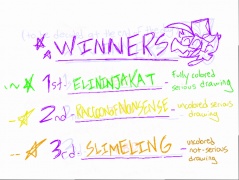 WINNERS
1st - ELININJAKAT - fully colored serious drawing
2nd - RACCOONOFNONSENSE - uncolored serious drawing
3rd - SLIMELING - uncolored not-serious drawing